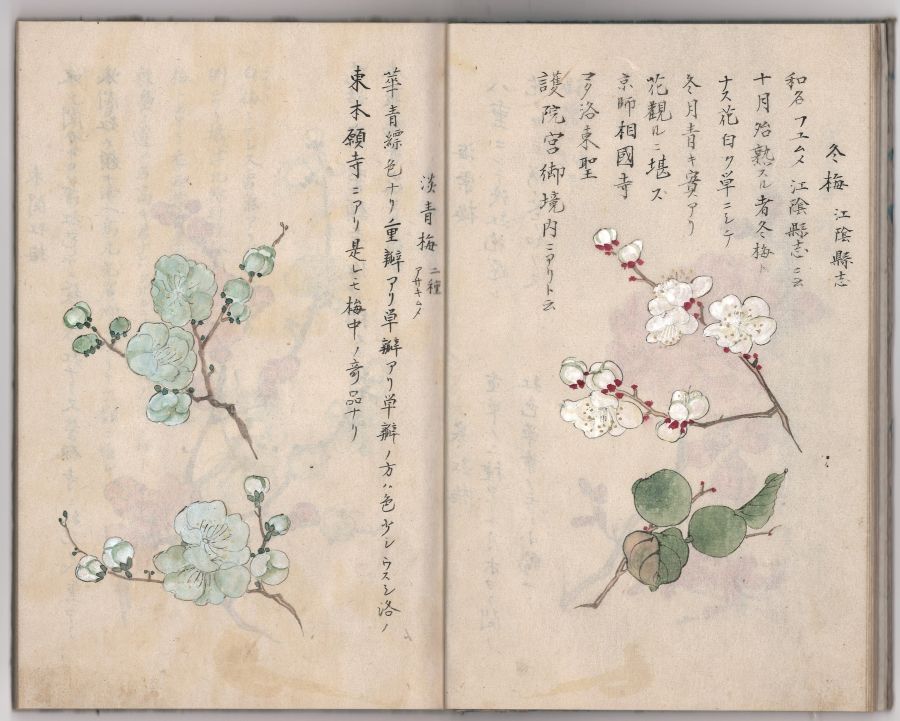 冬梅 江陰縣志
和名フユムメ 江陰縣志ニ云
十月始熟スル者冬梅ト
ナス花白ク単ニシテ
冬月青キ實アリ
花觀ルニ堪ズ
京師相國寺
マタ洛東聖
護院宮御境内ニアリト云
淡青梅 二種
アサキムメ
華青縹色ナリ重瓣アリ単瓣アリ単瓣ノ方ハ色少シウスシ洛ノ
東本願寺ニアリ是レモ梅中ノ奇品ナリ